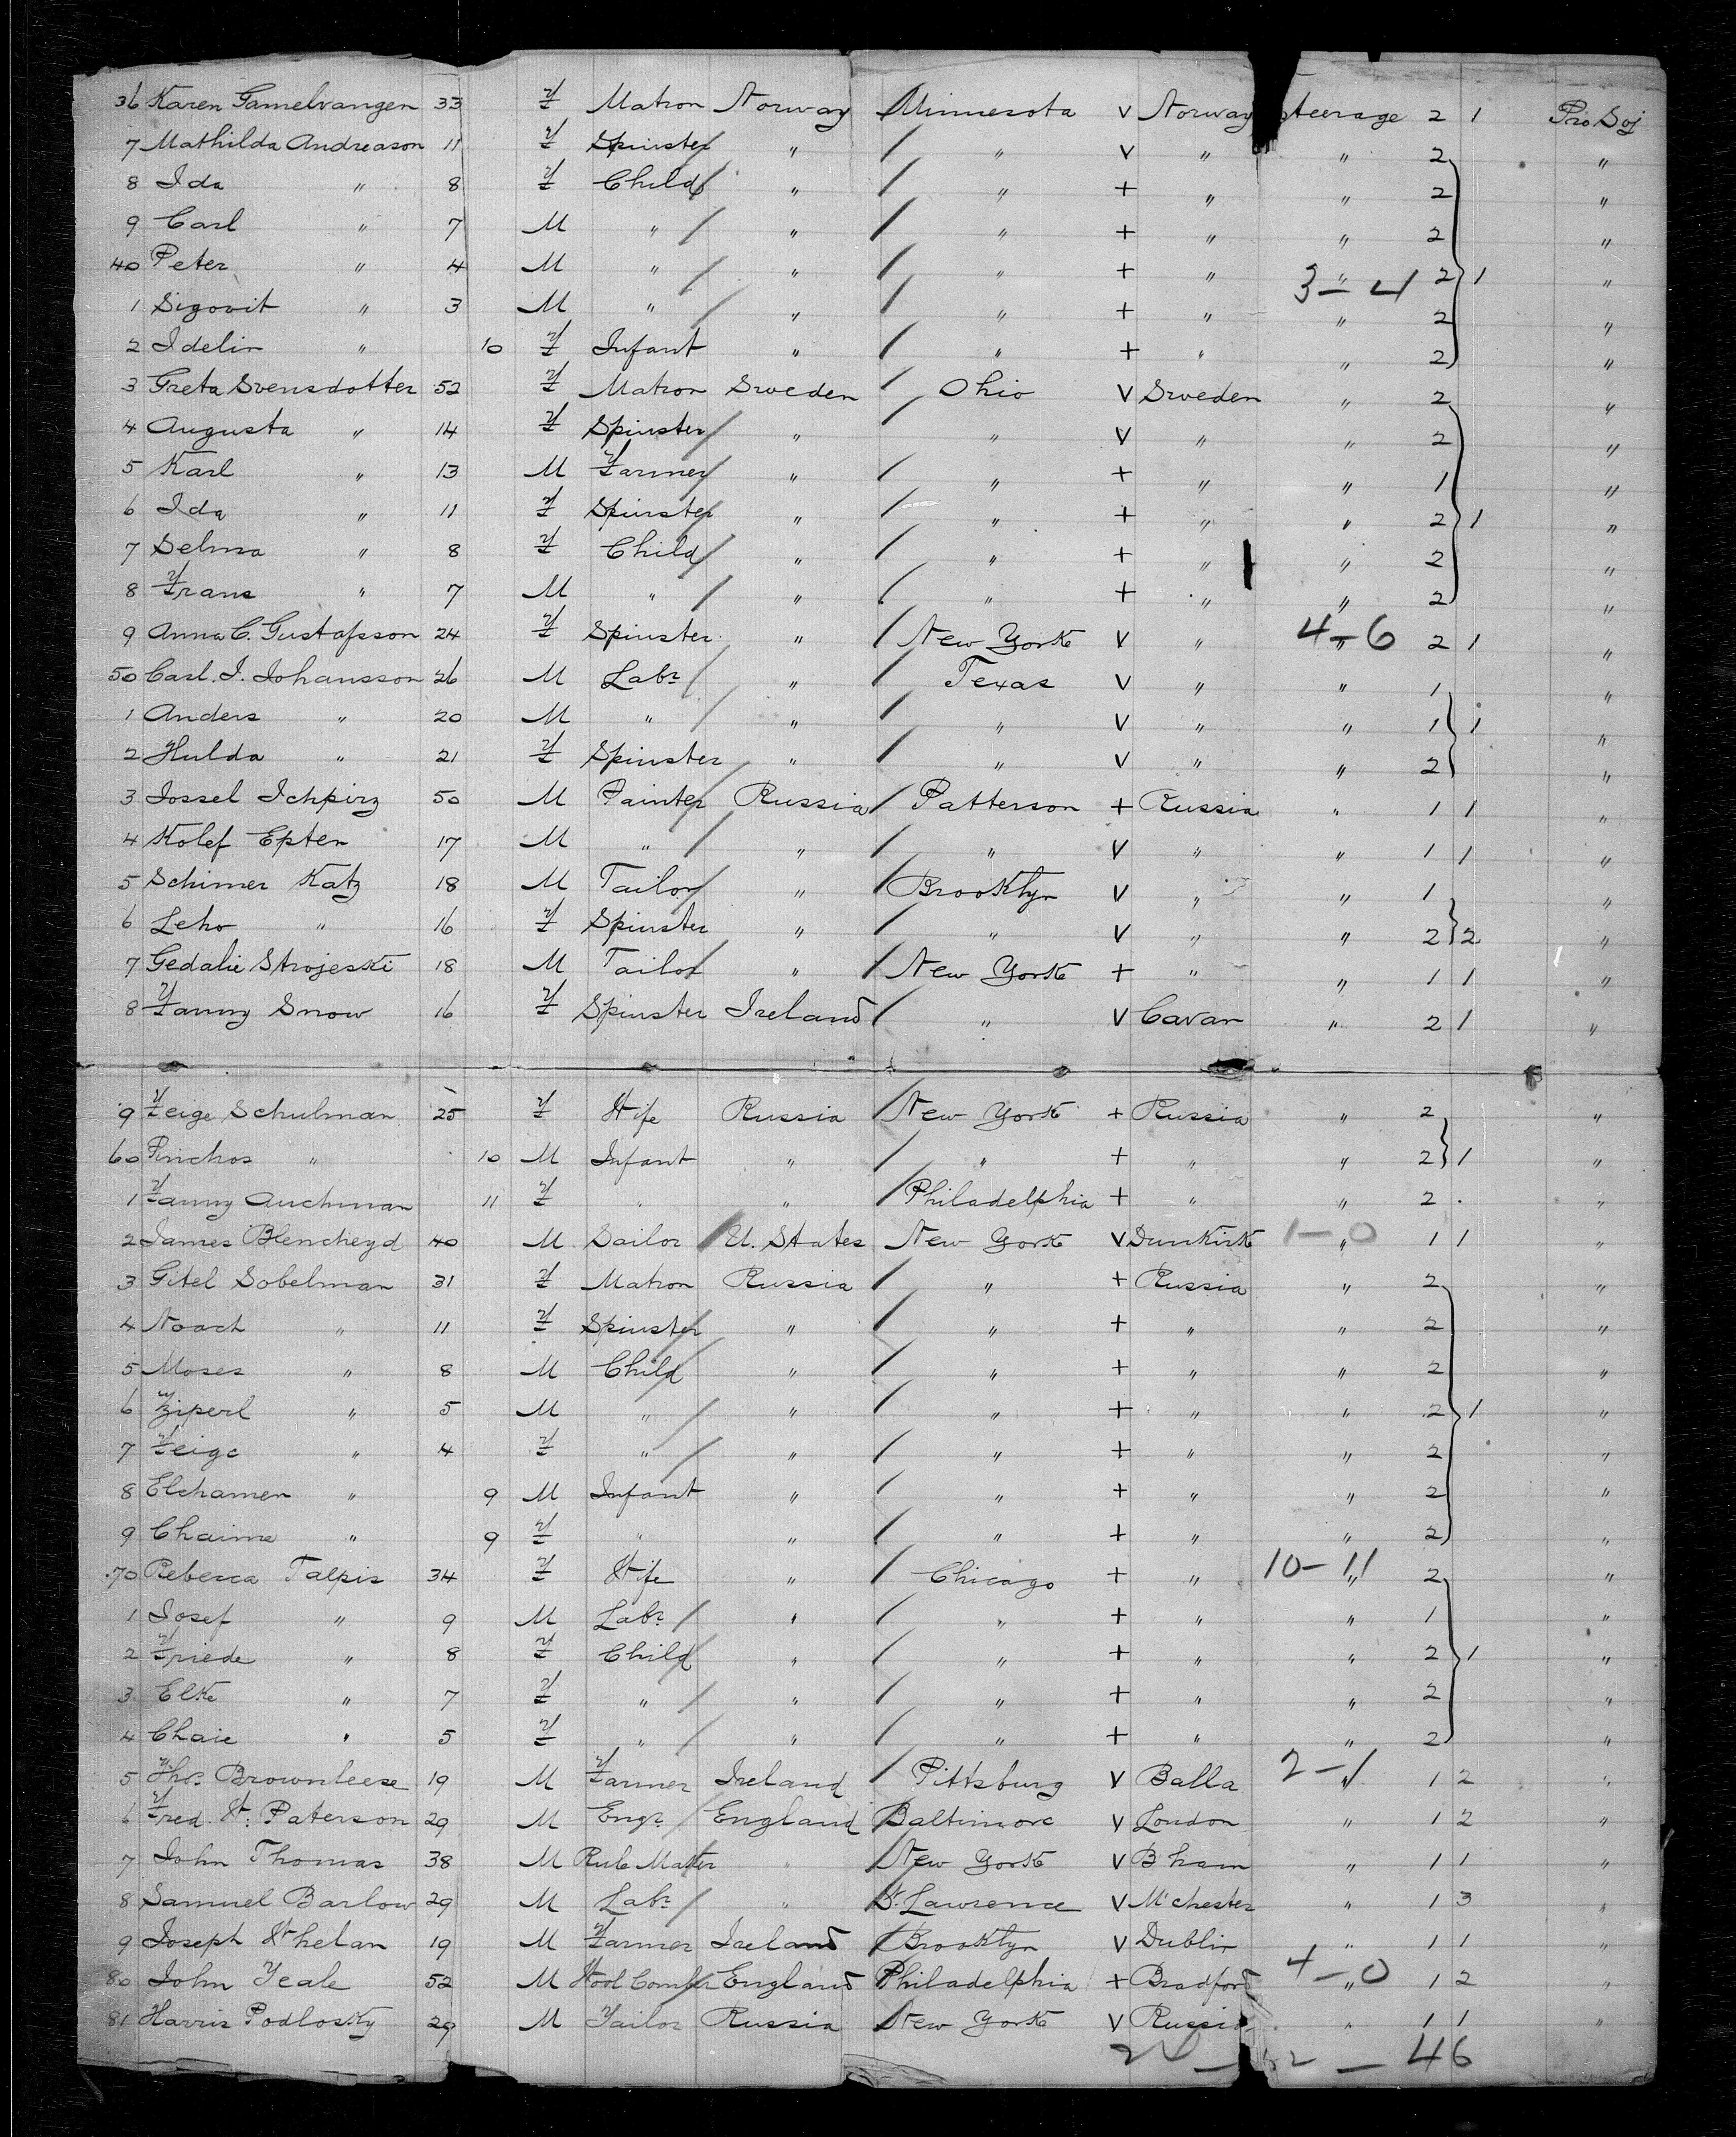 36 Karen Gamelvangen 33 F Matron Norway Minnesota V Norway Steerage 2 1 Pro Soj
7 Mathilda Andreason 11 F Spinster " " V " " 2 "
8 Ida " 8 F Child " " + " " 2 "
9 Carl " 7 M " " " + " " 2 "
40 Peter " 4 M " " " + " 3-4 " 2 1 "
1 Sigovit " 3 M " " " + " " 2 "
2 Idelin " 10 F Infant " " + " " 2 "
3 Greta Svensdotter 52 F Matron Sweden Ohio V Sweden " 2 "
4 Augusta " 14 F Spinster " " V " " 2 "
5 Karl " 13 M Farmer " " + " " 1 "
6 Ida " 11 F Spinster " " + " " 2 1 "
7 Selma " 8 F Child " " + " " 2 "
8 Frans " 7 M " " " + " " 2 "
9 Anna C. Gustafsson 24 F Spinster " New York V " 4-6 " 2 1 "
50 Carl. J. Johansson 26 M Labr " Texas V " " 1 "
1 Anders " 20 M " " " V " " 1 1 "
2 Hulda " 21 F Spinster " " V " " 2 "
3 Jossel Ichpirz 50 M Painter Russia Patterson + Russia " 1 1 "
4 Kolef Epter 17 M " " " V " " 1 1 "
5 Schimer Katz 18 M Tailor " Brooklyn V " " 1 "
6 Leho " 16 F Spinster " " V " " 2 2 "
7 Gedalie Strojeski 18 M Tailor " New York + " " 1 1 "
8 Fanny Snow 16 F Spinster Ireland " V Cavan " 2 1 "
9 Feige Schulman 25 F Wife Russia New York + Russia " 2 "
60 Pinchos " 10 M Infant " " + " " 2 1 "
1 Fanny Auchman 11 F " " Philadelphia + " " 2 "
2 James Blencheyd 40 M Sailor U. States New York V Dunkirk 1-0 " 1 1 "
3 Gitel Sobelman 31 F Matron Russia " + Russia " 2 "
4 Noach " 11 F Spinster " " + " " 2 "
5 Moses " 8 M Child " " + " " 2 "
6 Ziperl " 5 M " " " + " " 2 1 "
7 Feige " 4 F " " " + " " 2 "
8 Elchamen " 9 M Infant " " + " " 2 "
9 Chaime " 9 F " " " + " " 2 "
70 Rebecca Talpis 34 F Wife " Chicago + " 10-11 " 2 "
1 Josef " 9 M Labr " " + " " 1 "
2 Friede " 8 F Child " " + " " 2 1 "
3 Elke " 7 F " " " + " " 2 "
4 Chaie " 5 F " " " + " " 2 "
5 Thos. Brownleese 19 M Farmer Ireland Pittsburg V Balla 2-1 " 1 2 "
6 Fred. W. Paterson 29 M Engr England Baltimore V London " 1 2 "
7 John Thomas 38 M Rule Maker " New York V B'ham " 1 1 "
8 Samuel Barlow 29 M Labr " St. Lawrence V M'chester " 1 3 "
9 Joseph Whelan 19 M Farmer Ireland Brooklyn V Dublin " 1 1 "
80 John Yeale 52 M Wool Comber England Philadelphia + Bradford 4-0 " 1 2 "
81 Harris Podlosky 29 M Tailor Russia New York V Russia " 1 1 "
— 46